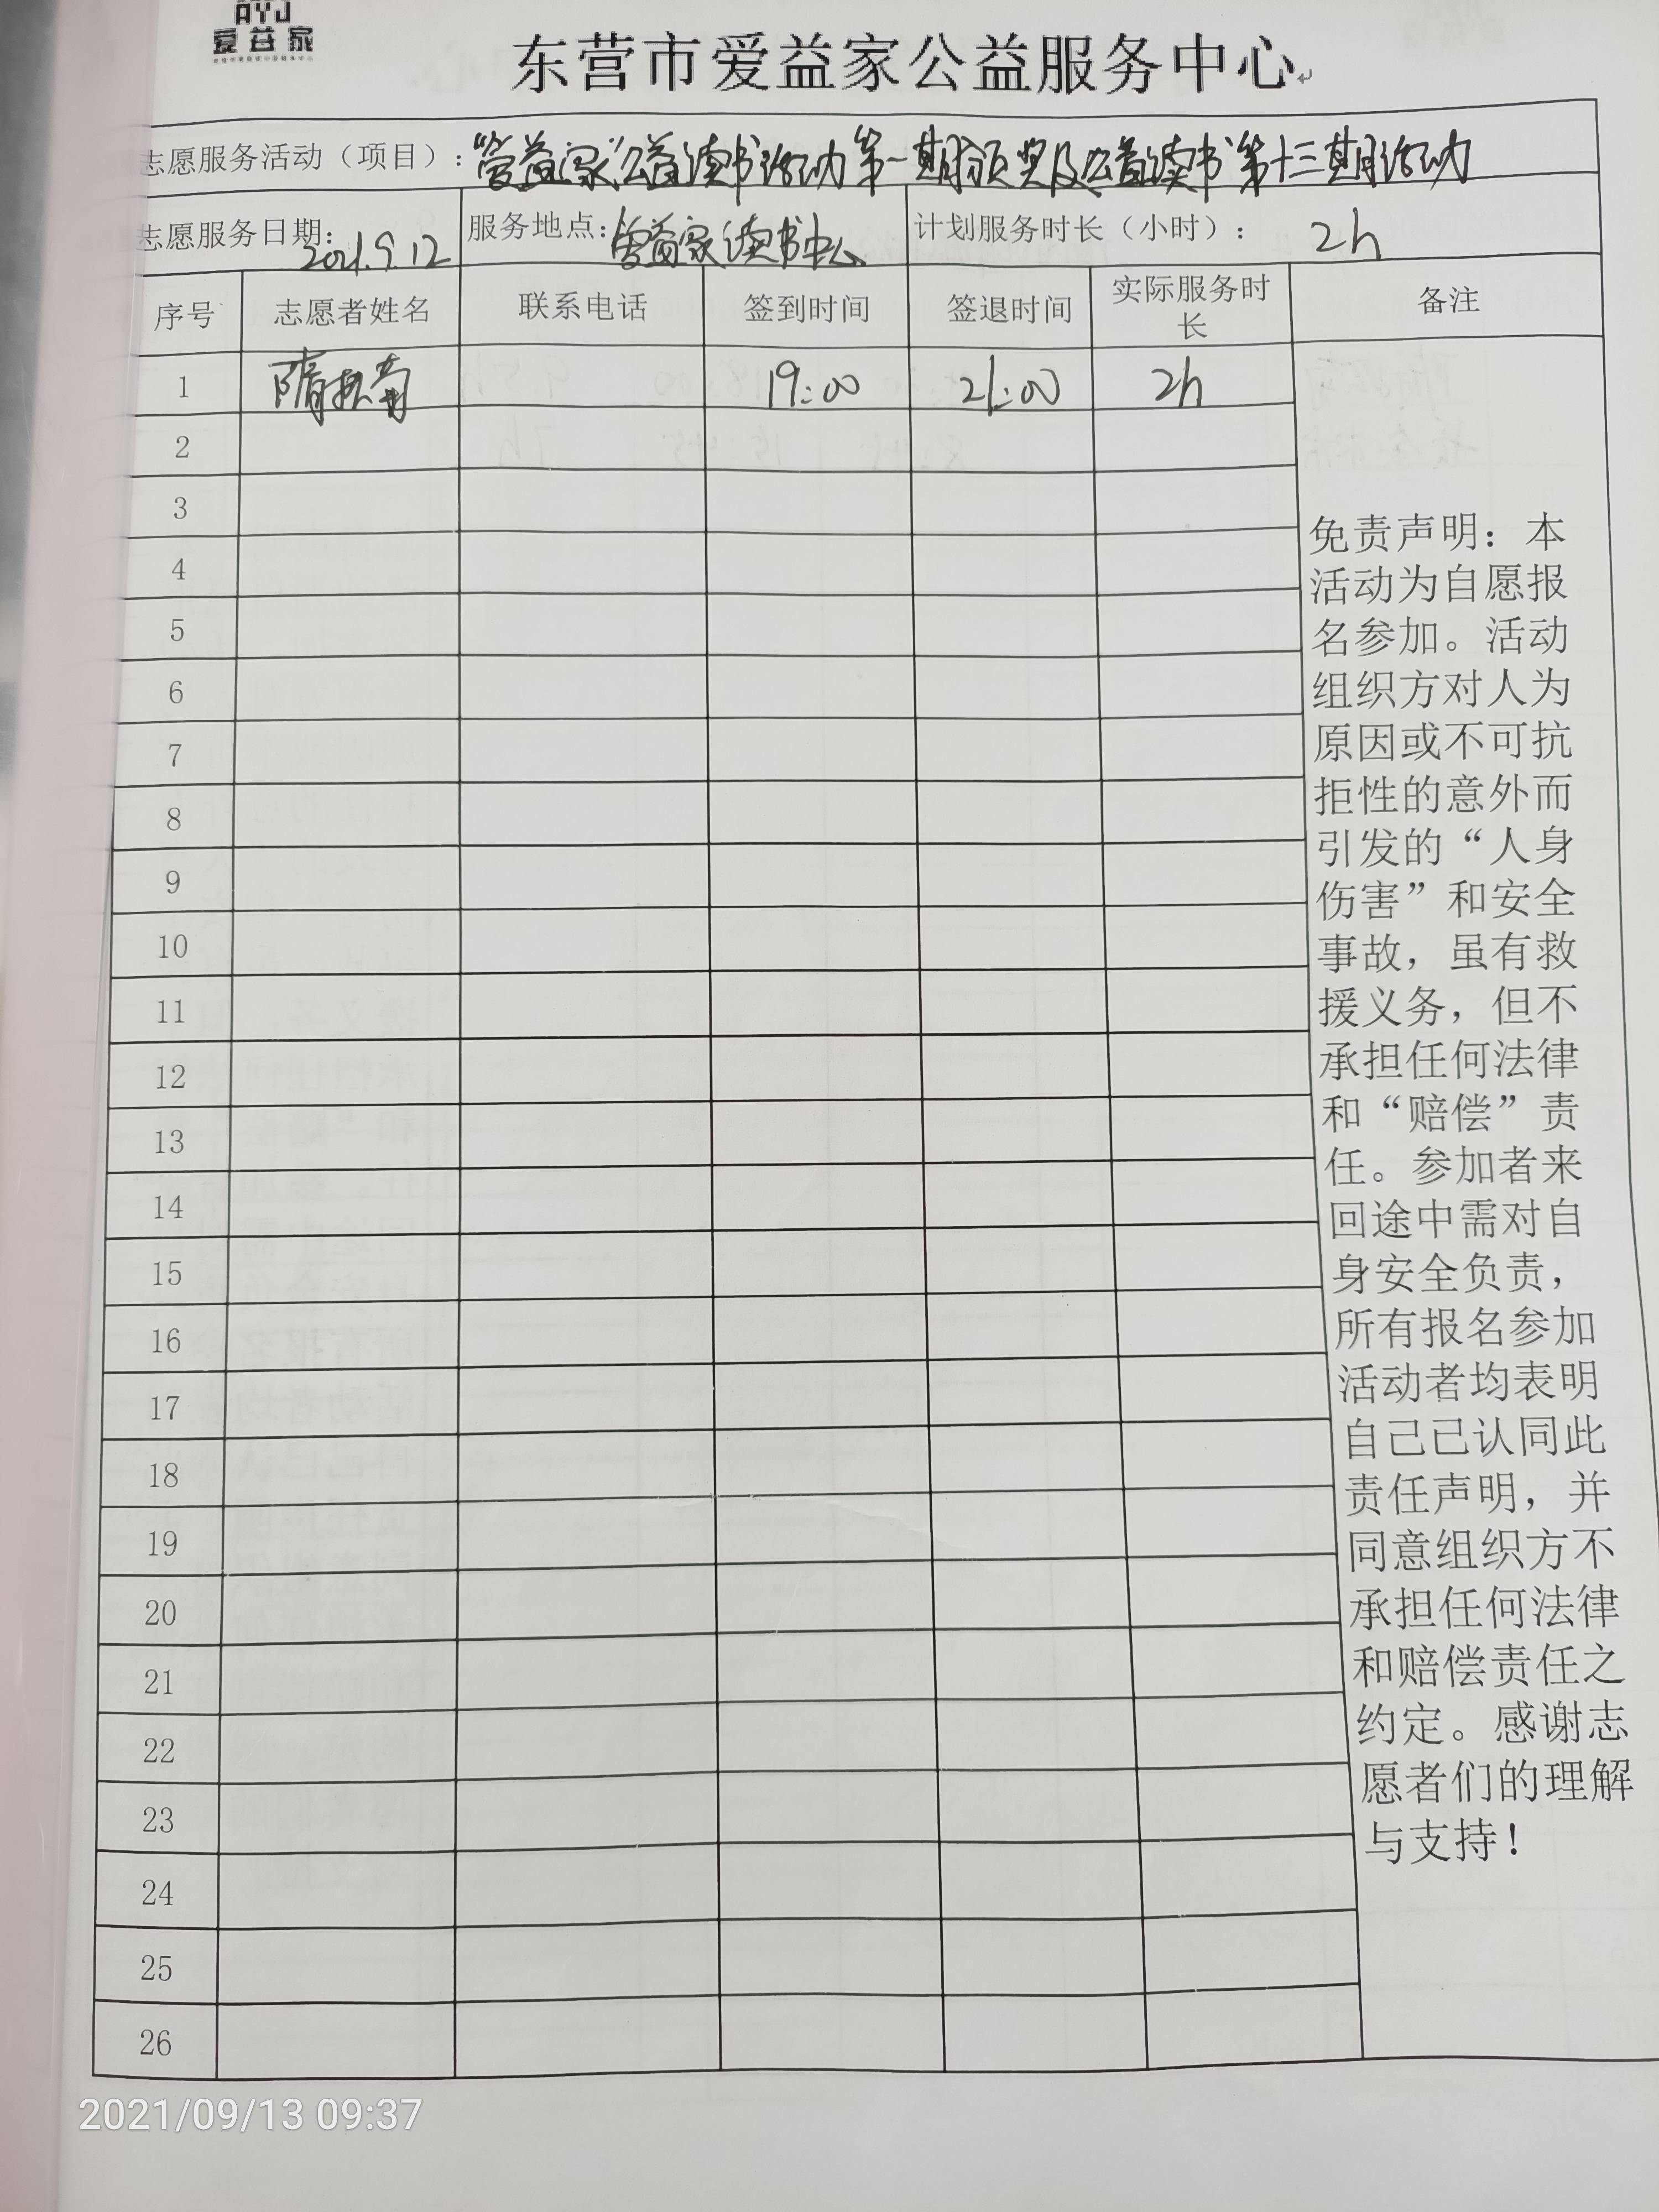 AYJ
爱益家
东营市爱益家公益服务中心
志愿服务活动（项目）：“爱益家”公益读书活动第一期颁奖及公益读书第十三期活动
志愿服务日期：2021.9.12 服务地点：爱益家读书中心 计划服务时长（小时）：2h
序号 志愿者姓名 联系电话 签到时间 签退时间 实际服务时长 备注
1 隋振菊 19:00 21:00 2h
2
3
4
5
6
7
8
9
10
11
12
13
14
15
16
17
18
19
20
21
22
23
24
25
26
免责声明：本
活动为自愿报
名参加。活动
组织方对人为
原因或不可抗
拒性的意外而
引发的“人身
伤害”和安全
事故，虽有救
援义务，但不
承担任何法律
和“赔偿”责
任。参加者来
回途中需对自
身安全负责，
所有报名参加
活动者均表明
自己已认同此
责任声明，并
同意组织方不
承担任何法律
和赔偿责任之
约定。感谢志
愿者们的理解
与支持！
2021/09/13 09:37